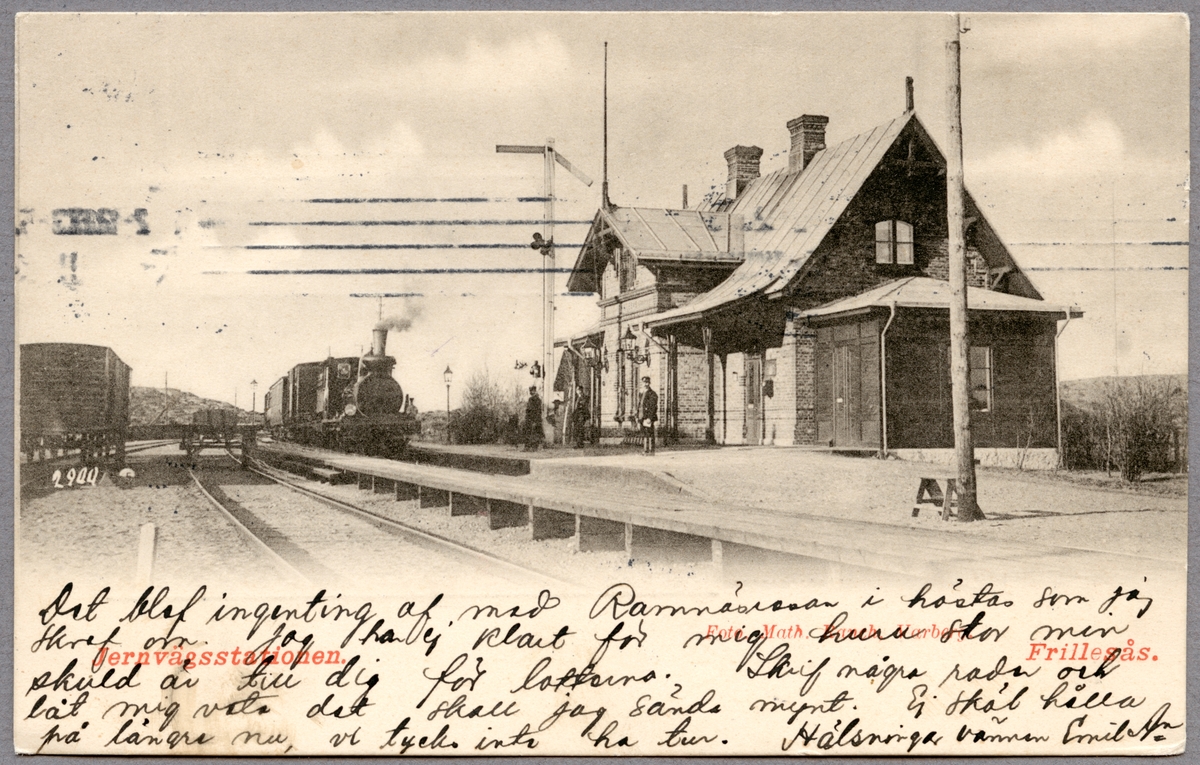 2900
Det blef ingenting af med Ramnäsresan i höstas som jag
skref om. Jag har ej klart för mig huru stor min
Foto. Math. Varberg.
Jernvägsstationen.
Frillesås.
skuld är till dig för lotterna. Skrif några rader och
låt mig veta det skall jag sända mynt. Ej skäl hålla
på längre nu, vi tycks inte ha tur. Hälsningar vännen Emil